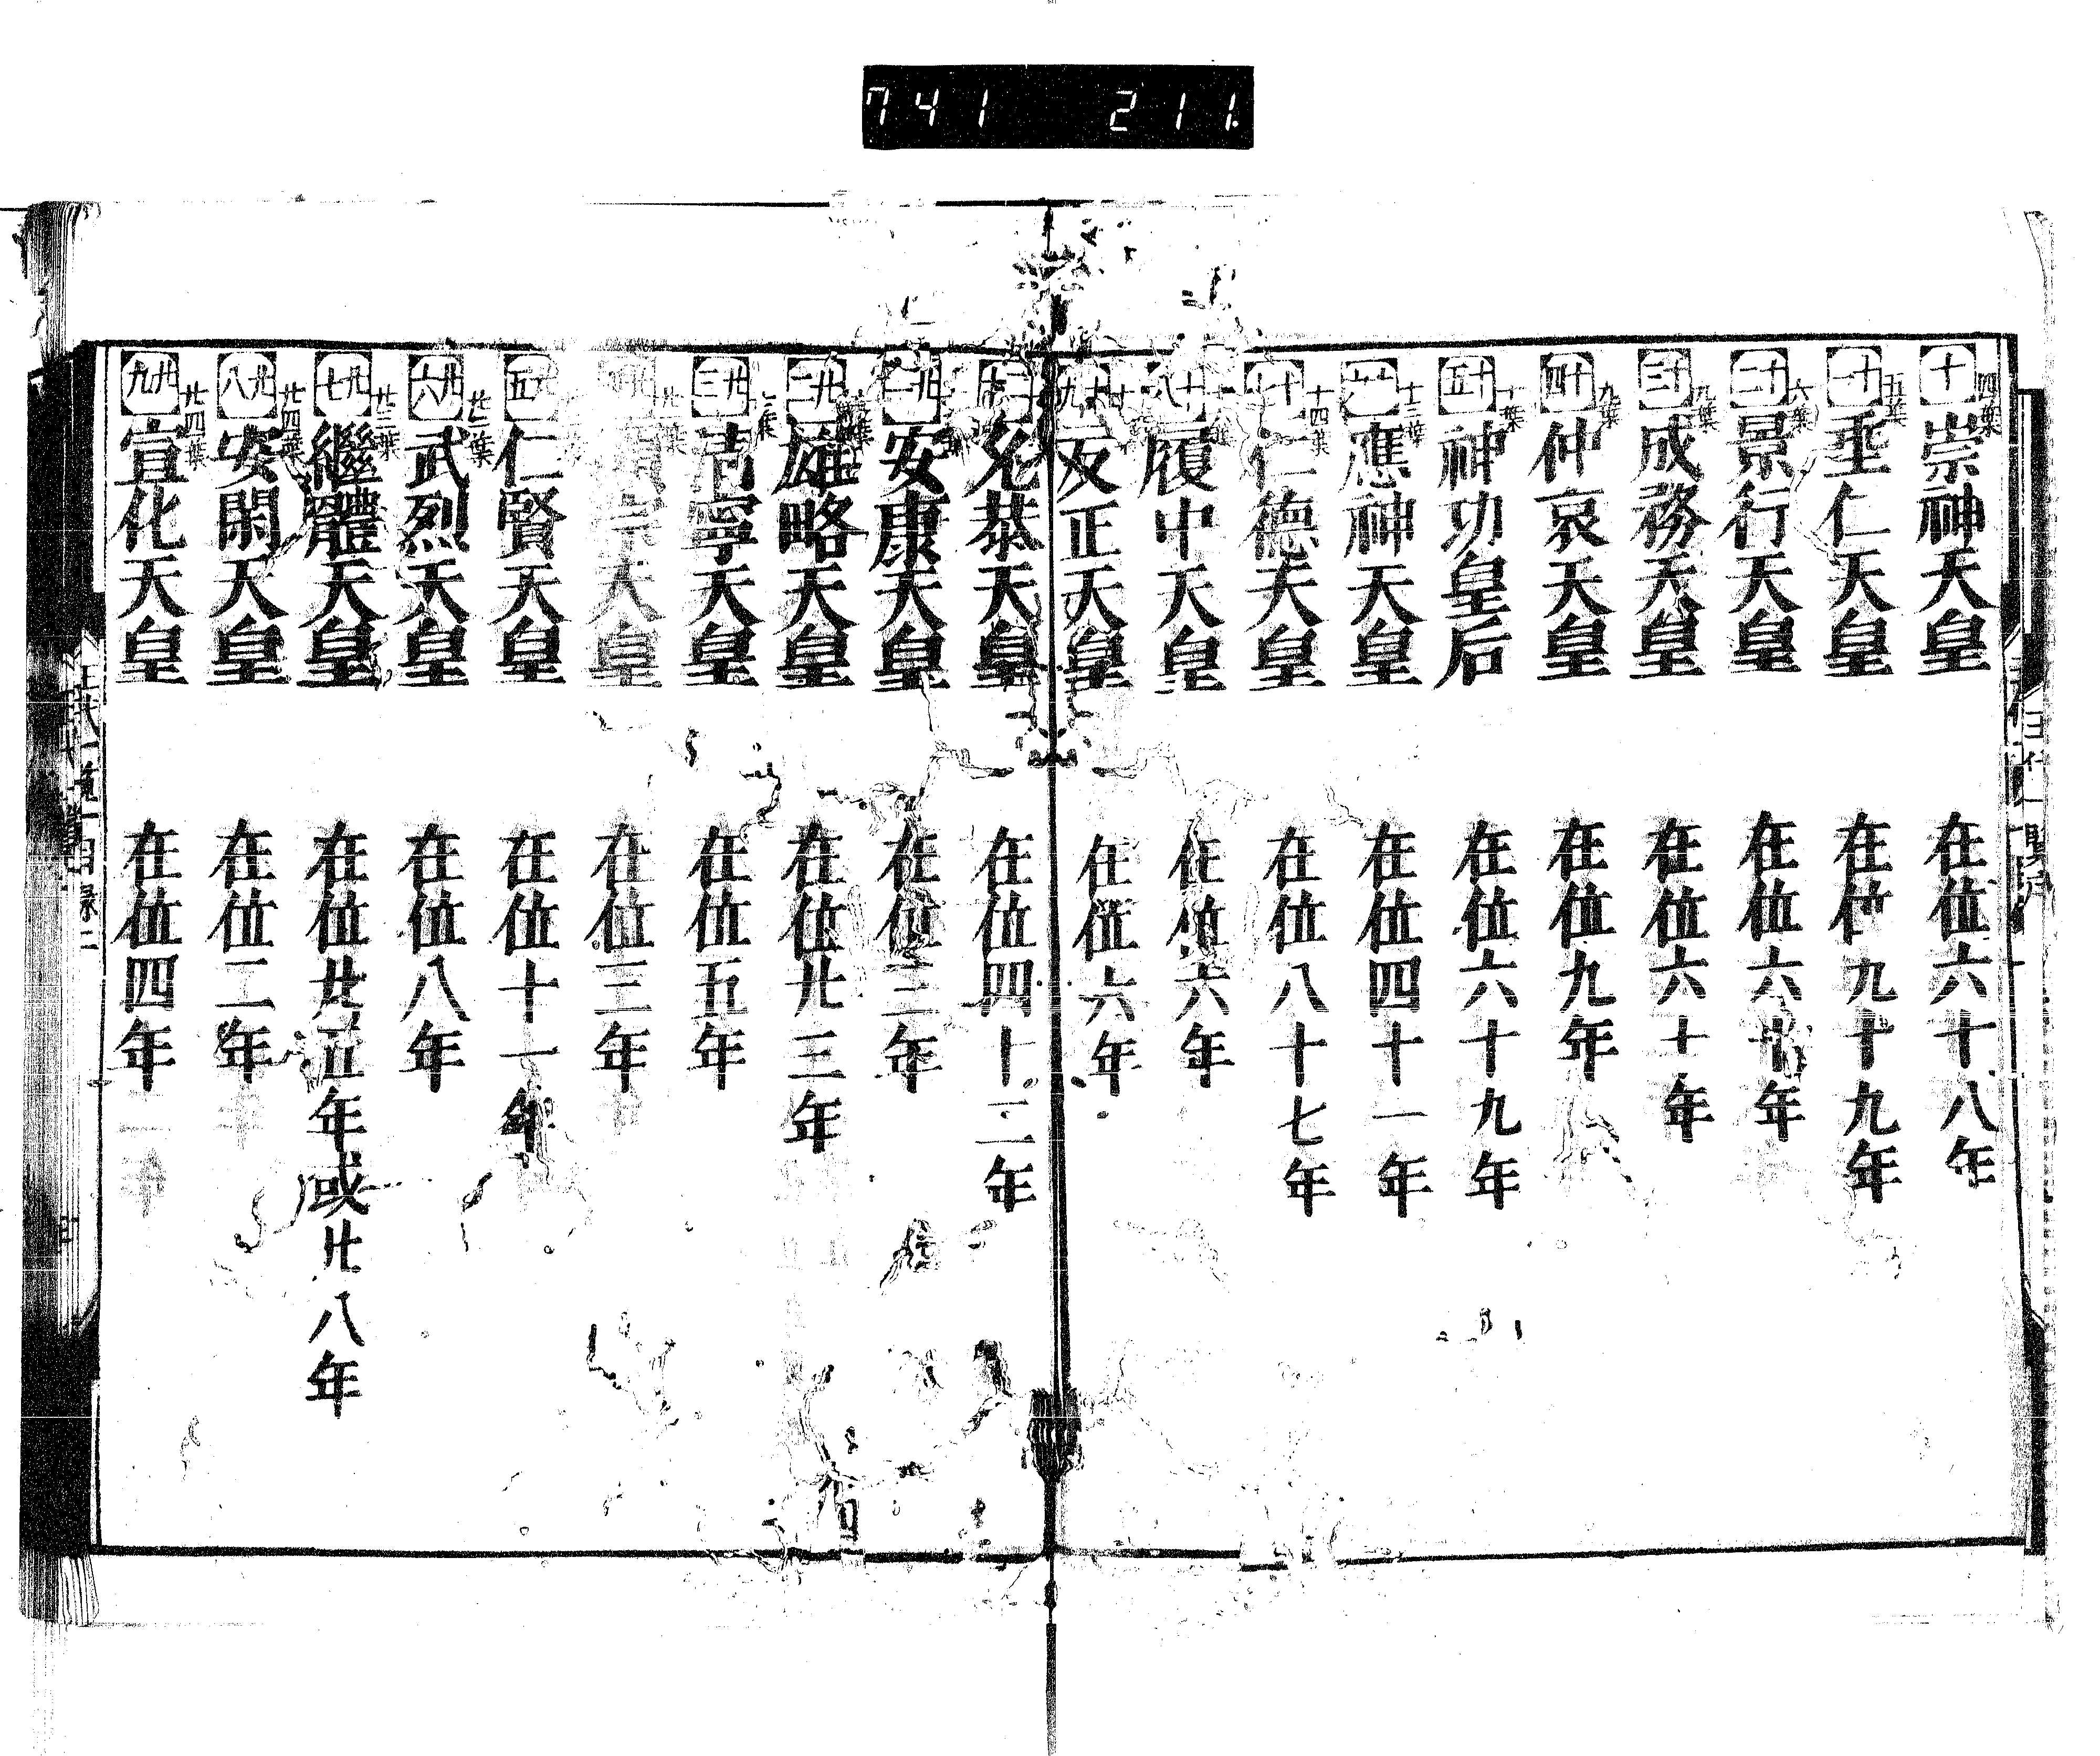 741 211.
十 四葉 崇神天皇 在位六十八年
十一 五葉 垂仁天皇 在位九十九年
十二 六葉 景行天皇 在位六十年
十三 九葉 成務天皇 在位六十年
十四 九葉 仲哀天皇 在位九年
十五 神功皇后 在位六十九年
十六 十三葉 應神天皇 在位四十一年
十七 十四葉 仁德天皇 在位八十七年
十八 履中天皇 在位六年
十九 反正天皇 在位六年
二十 允恭天皇 在位四十二年
廿一 安康天皇 在位三年
廿二 雄略天皇 在位廿三年
廿三 清寧天皇 在位五年
宗天皇 在位三年
廿五 仁賢天皇 在位十一年
廿六 廿三葉 武烈天皇 在位八年
廿七 廿三葉 繼體天皇 在位廿五年或廿八年
廿八 廿四葉 安閑天皇 在位二年
廿九 廿四葉 宣化天皇 在位四年
王代一覽 目錄 二